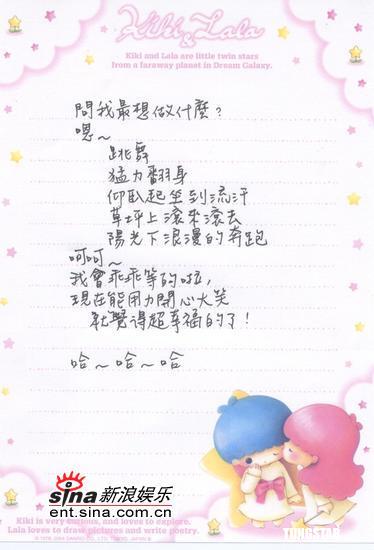 Kiki & Lala
Kiki and Lala are little twin stars
from a faraway planet in Dream Galaxy.
問我最想做什麼？
嗯～
跳舞
猛力翻身
仰臥起坐到流汗
草坪上滾來滾去
陽光下浪漫的奔跑
呵呵～
我會乖乖等的啦，
現在能用力開心大笑
就覺得超幸福的了！
哈～哈～哈
sina新浪娱乐
ent.sina.com.cn
Kiki is very curious, and loves to explore.
Lala loves to draw pictures and write poetry.
TUNGSTAR